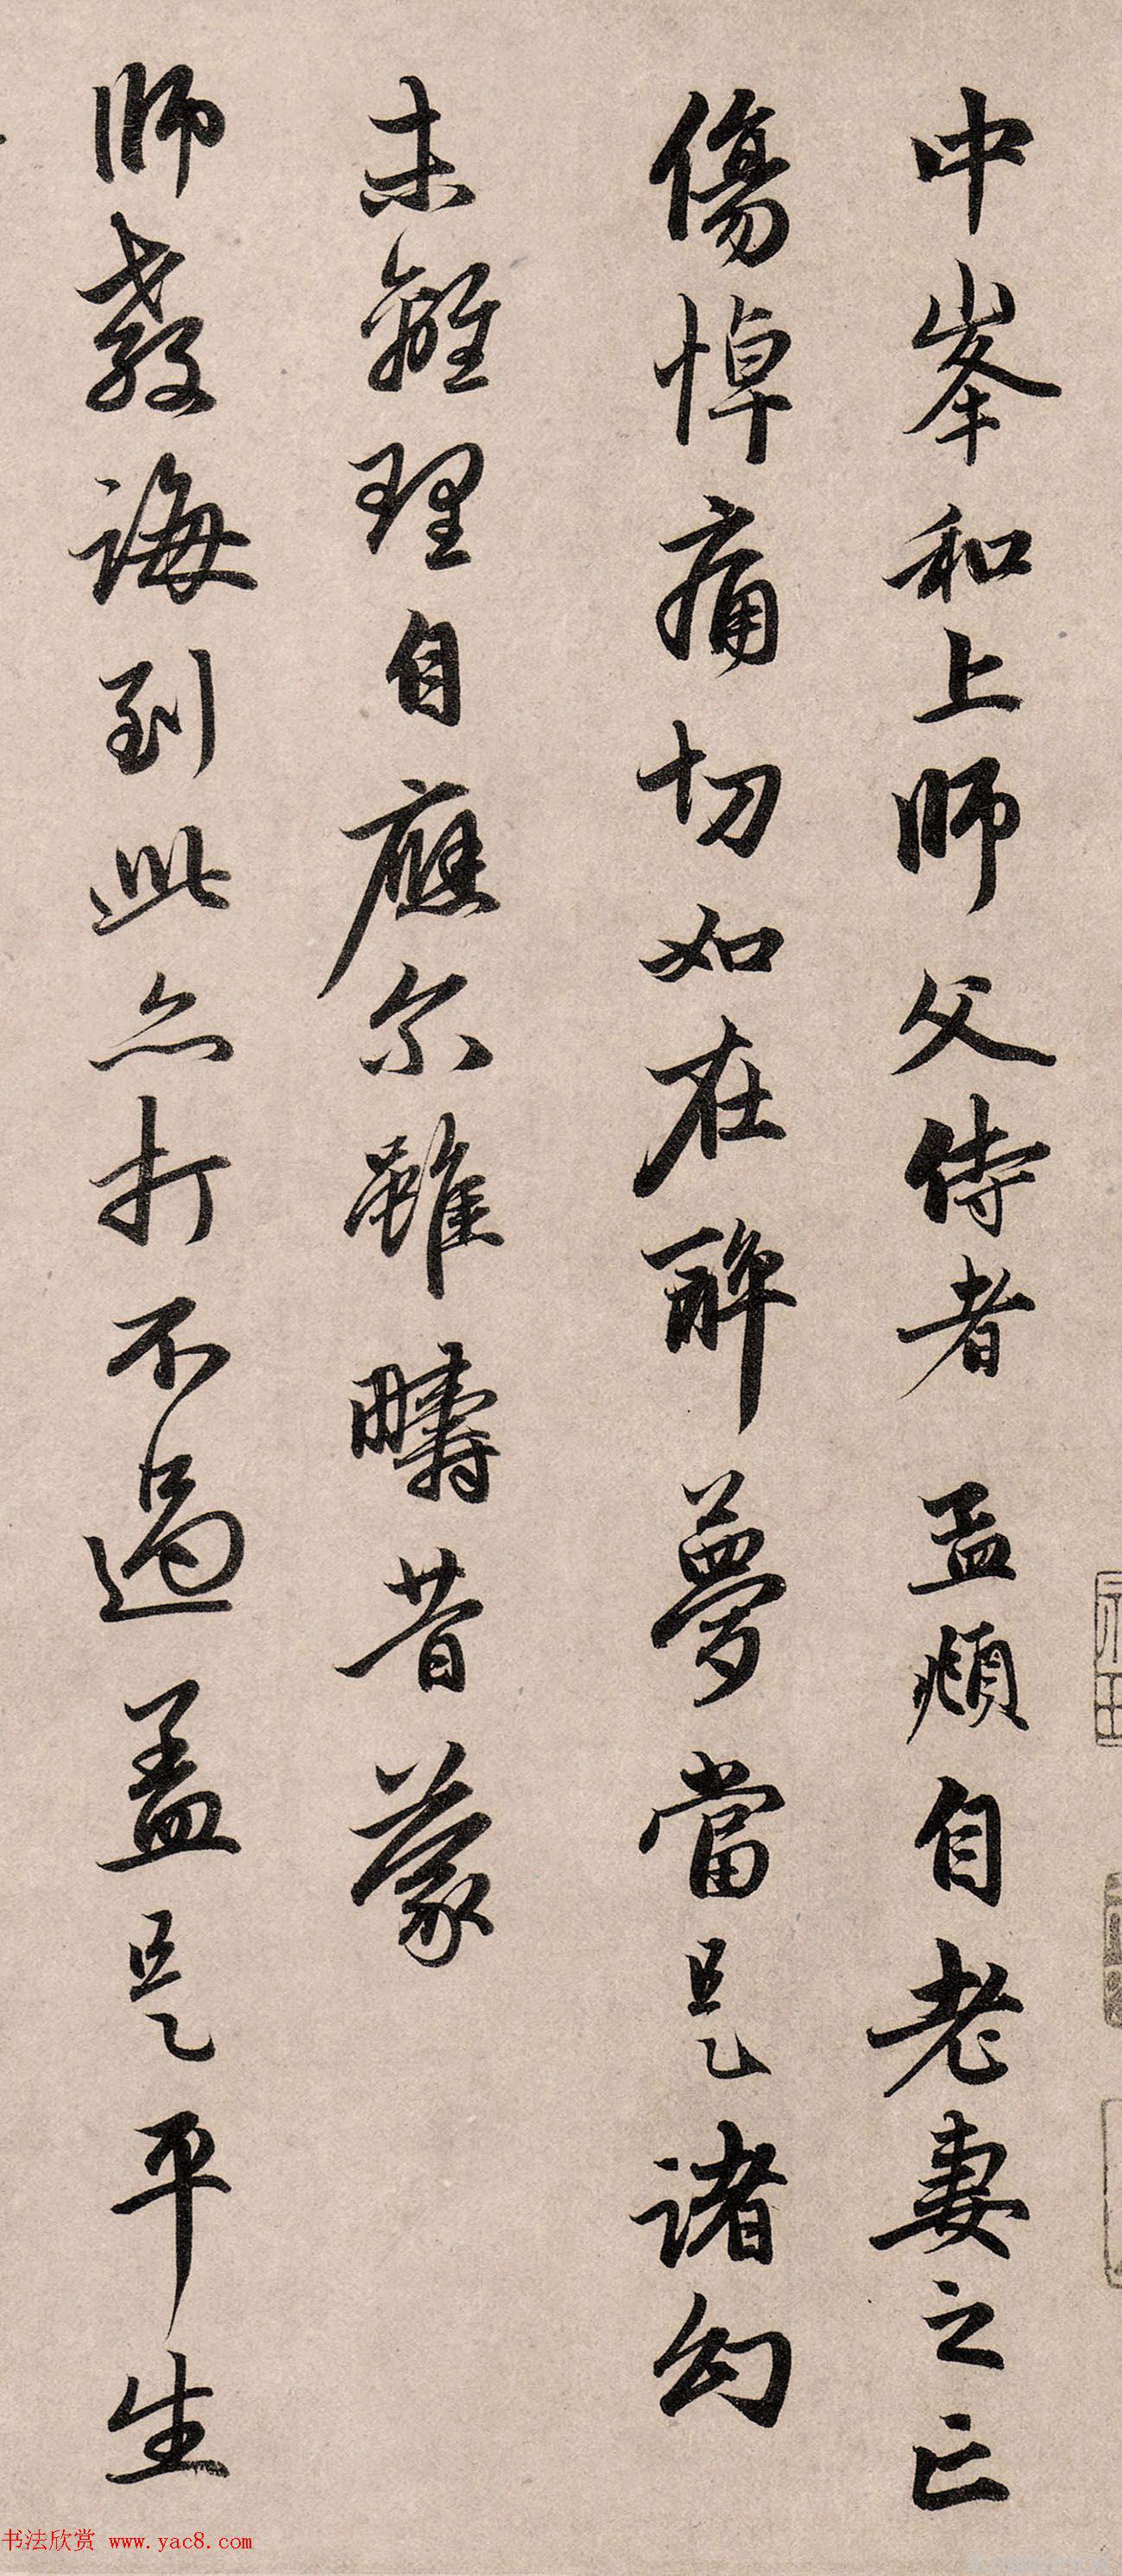 中峯和上師父侍者孟頫自老妻之亡
傷悼痛切如在醉夢當是諸幻
未離理自應尒雖疇昔蒙
師教誨到此亦打不過盖是平生
书法欣赏 www.yac8.com